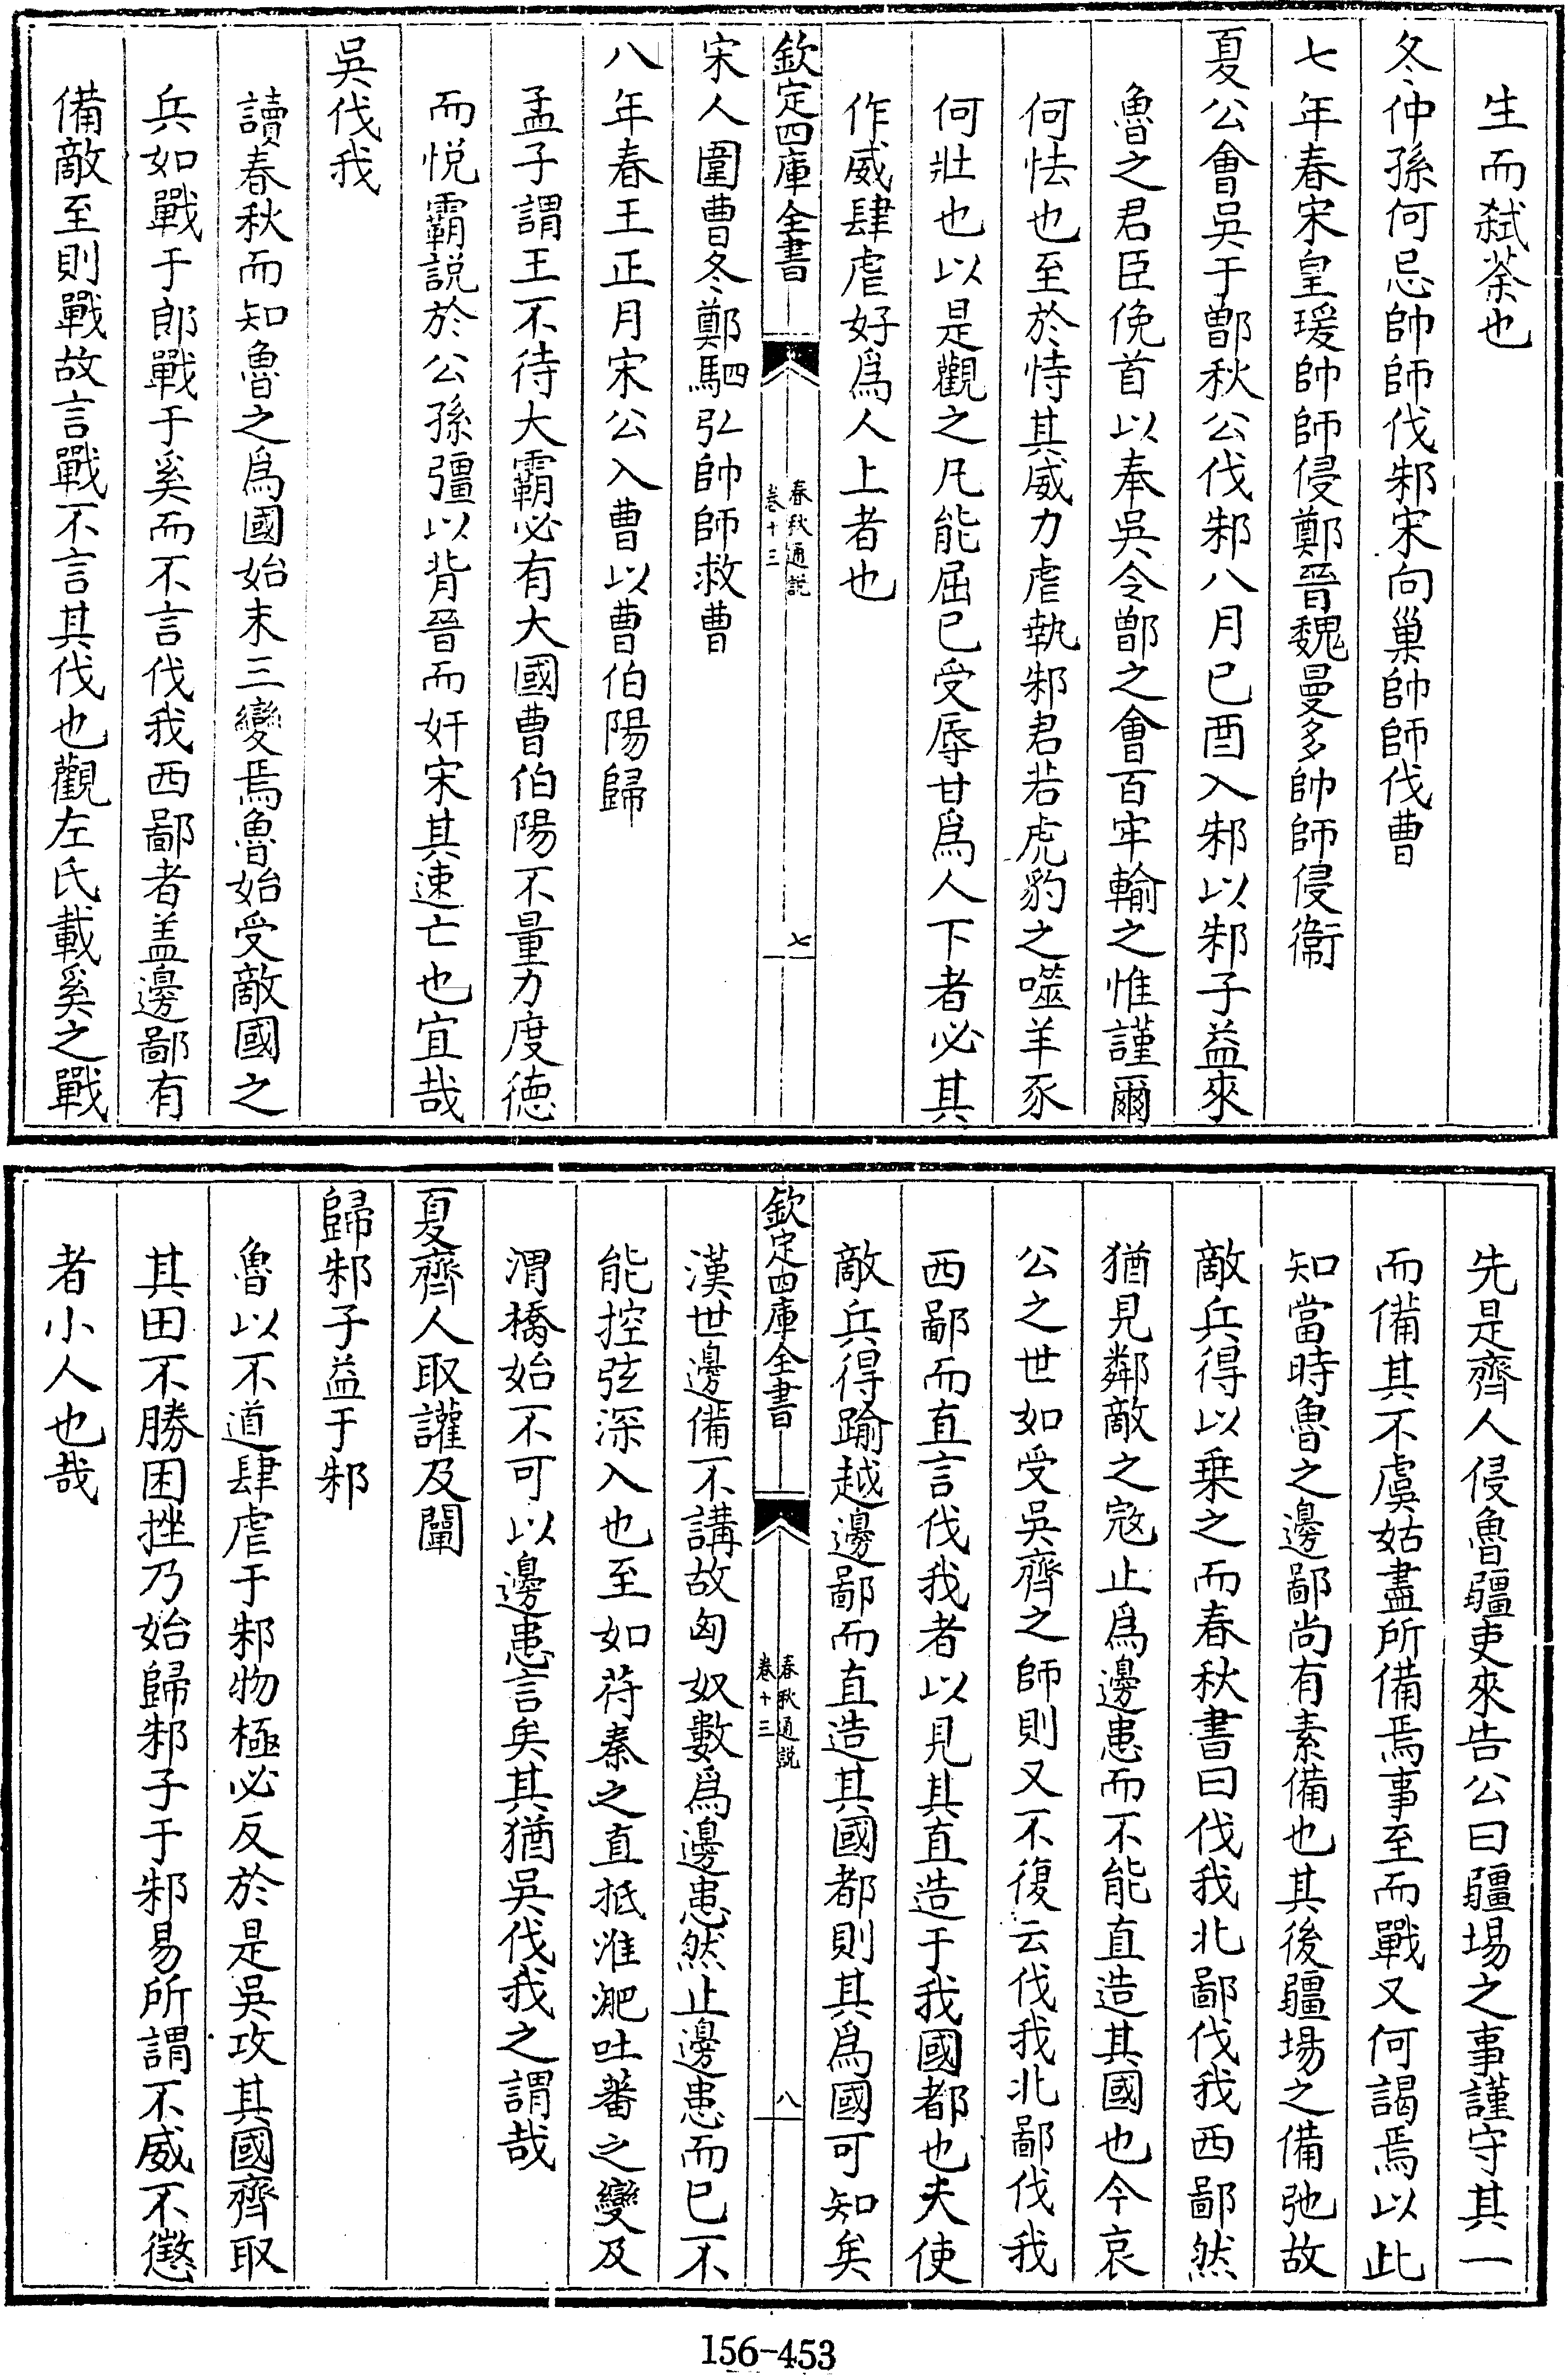 生而弑荼也
冬仲孫何忌帥師伐邾宋向巢帥師伐曹
七年春宋皇瑗帥師侵鄭晉魏曼多帥師侵衞
夏公會吳于鄫秋公伐邾八月已酉入邾以邾子益來
魯之君臣俛首以奉吳令鄫之會百牢輸之惟謹爾
何怯也至於恃其威力虐執邾君若虎豹之噬羊豕
何壯也以是觀之凡能屈已受辱甘爲人下者必其
作威肆虐好爲人上者也
欽定四庫全書
春秋通説
卷十三
七
宋人圍曹冬鄭駟弘帥師救曹
八年春王正月宋公入曹以曹伯陽歸
孟子謂王不待大霸必有大國曹伯陽不量力度德
而悦霸説於公孫彊以背晉而奸宋其速亡也宜哉
吳伐我
讀春秋而知魯之爲國始末三變焉魯始受敵國之
兵如戰于郎戰于奚而不言伐我西鄙者盖邊鄙有
備敵至則戰故言戰不言其伐也觀左氏載奚之戰
先是齊人侵魯疆吏來告公曰疆埸之事謹守其一
而備其不虞姑盡所備焉事至而戰又何謁焉以此
知當時魯之邊鄙尚有素備也其後疆埸之備弛故
敵兵得以乗之而春秋書曰伐我北鄙伐我西鄙然
猶見鄰敵之宼止爲邊患而不能直造其國也今哀
公之世如受吳齊之師則又不復云伐我北鄙伐我
西鄙而直言伐我者以見其直造于我國都也夫使
敵兵得踰越邊鄙而直造其國都則其爲國可知矣
欽定四庫全書
春秋通説
卷十三
八
漢世邊備不講故匈奴數爲邊患然止邊患而已不
能控弦深入也至如苻秦之直抵淮淝吐蕃之變及
渭橋始不可以邊患言矣其猶吳伐我之謂哉
夏齊人取讙及闡
歸邾子益于邾
魯以不道肆虐于邾物極必反於是吳攻其國齊取
其田不勝困挫乃始歸邾子于邾易所謂不威不懲
者小人也哉
156-453